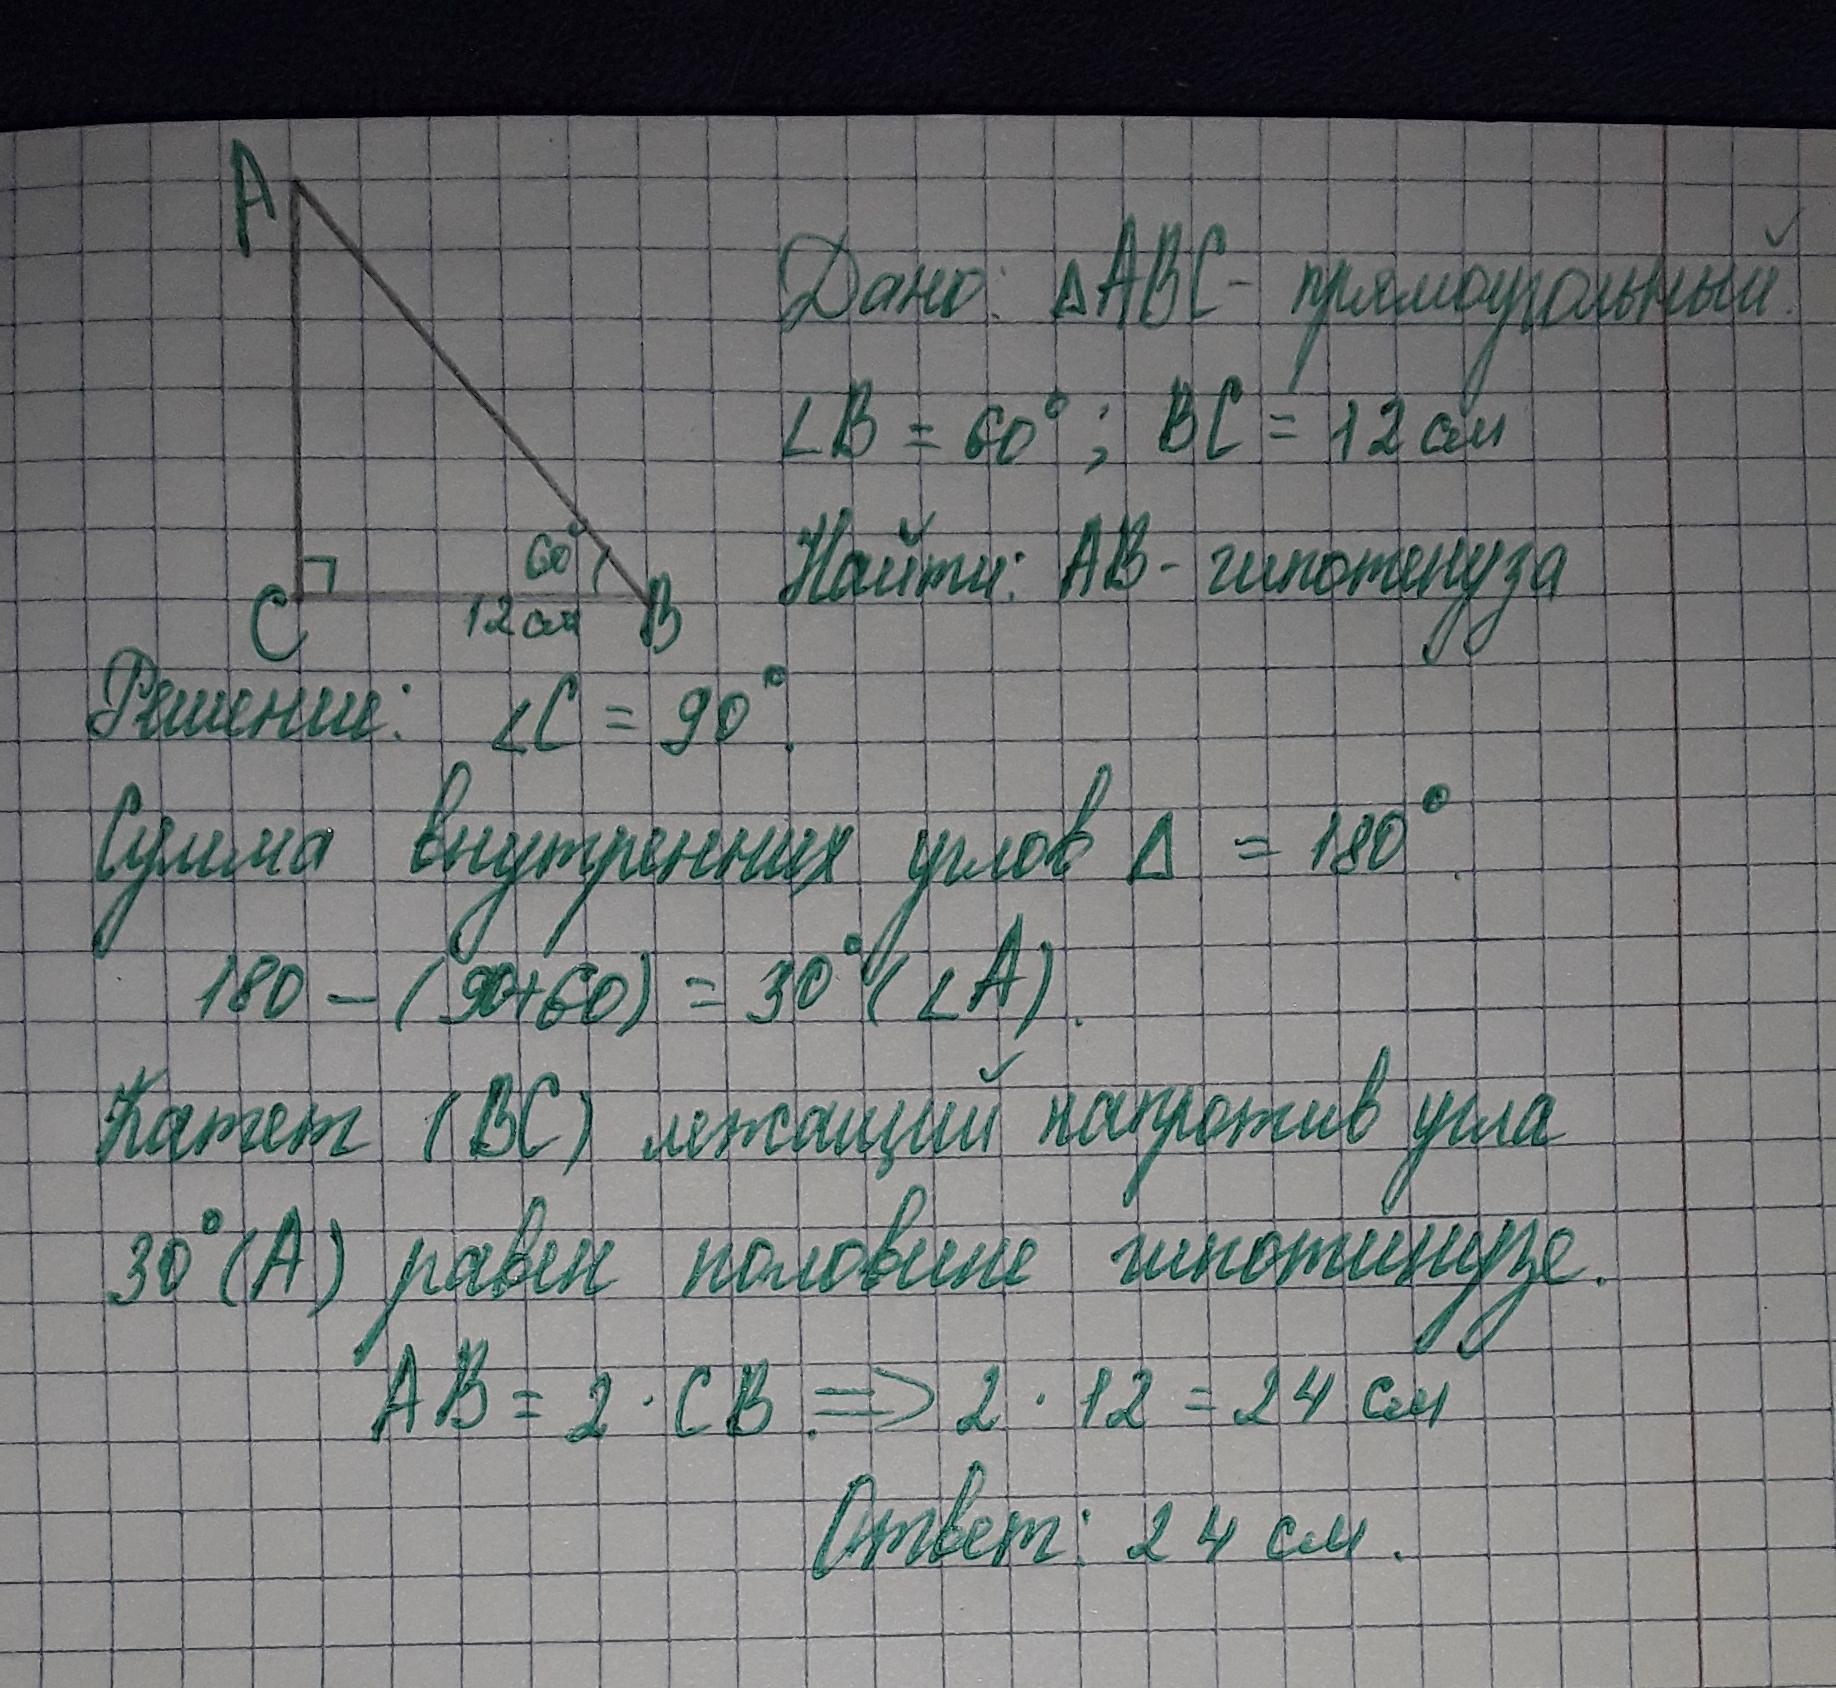 A
Дано: ΔABC - прямоугольный.
∠B = 60°; BC = 12 см
60°
Найти: AB - гипотенуза
C 12 см B
Решение: ∠C = 90°.
Сумма внутренних углов Δ = 180°.
180 – (90+60) = 30° (∠A).
Катет (BC) лежащий напротив угла
30° (A) равен половине гипотинузе.
AB = 2 · CB. => 2 · 12 = 24 см
Ответ: 24 см.